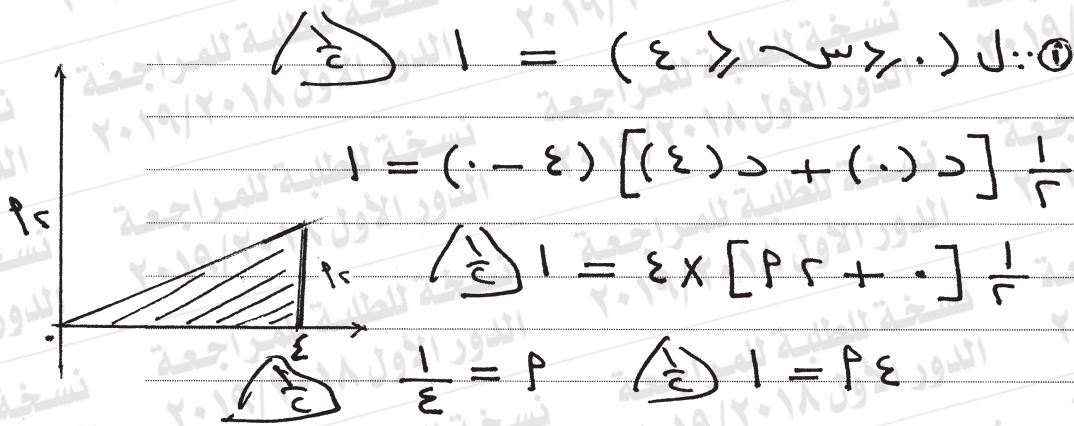 ① ∵ ل (٠ ≤ س ≤ ٤) = ١ (١/٢)
١/٢ [د (٠) + د (٤)] (٤ - ٠) = ١
١/٢ [٠ + ٢ م] × ٤ = ١ (١/٢)
٤ م = ١ (١/٢) م = ١/٤ (١/٢)
٢ م
٢ م
٤
٠
نسخة للطلبة للمراجعة
الدور الأول ٢٠١٨/٢٠١٩